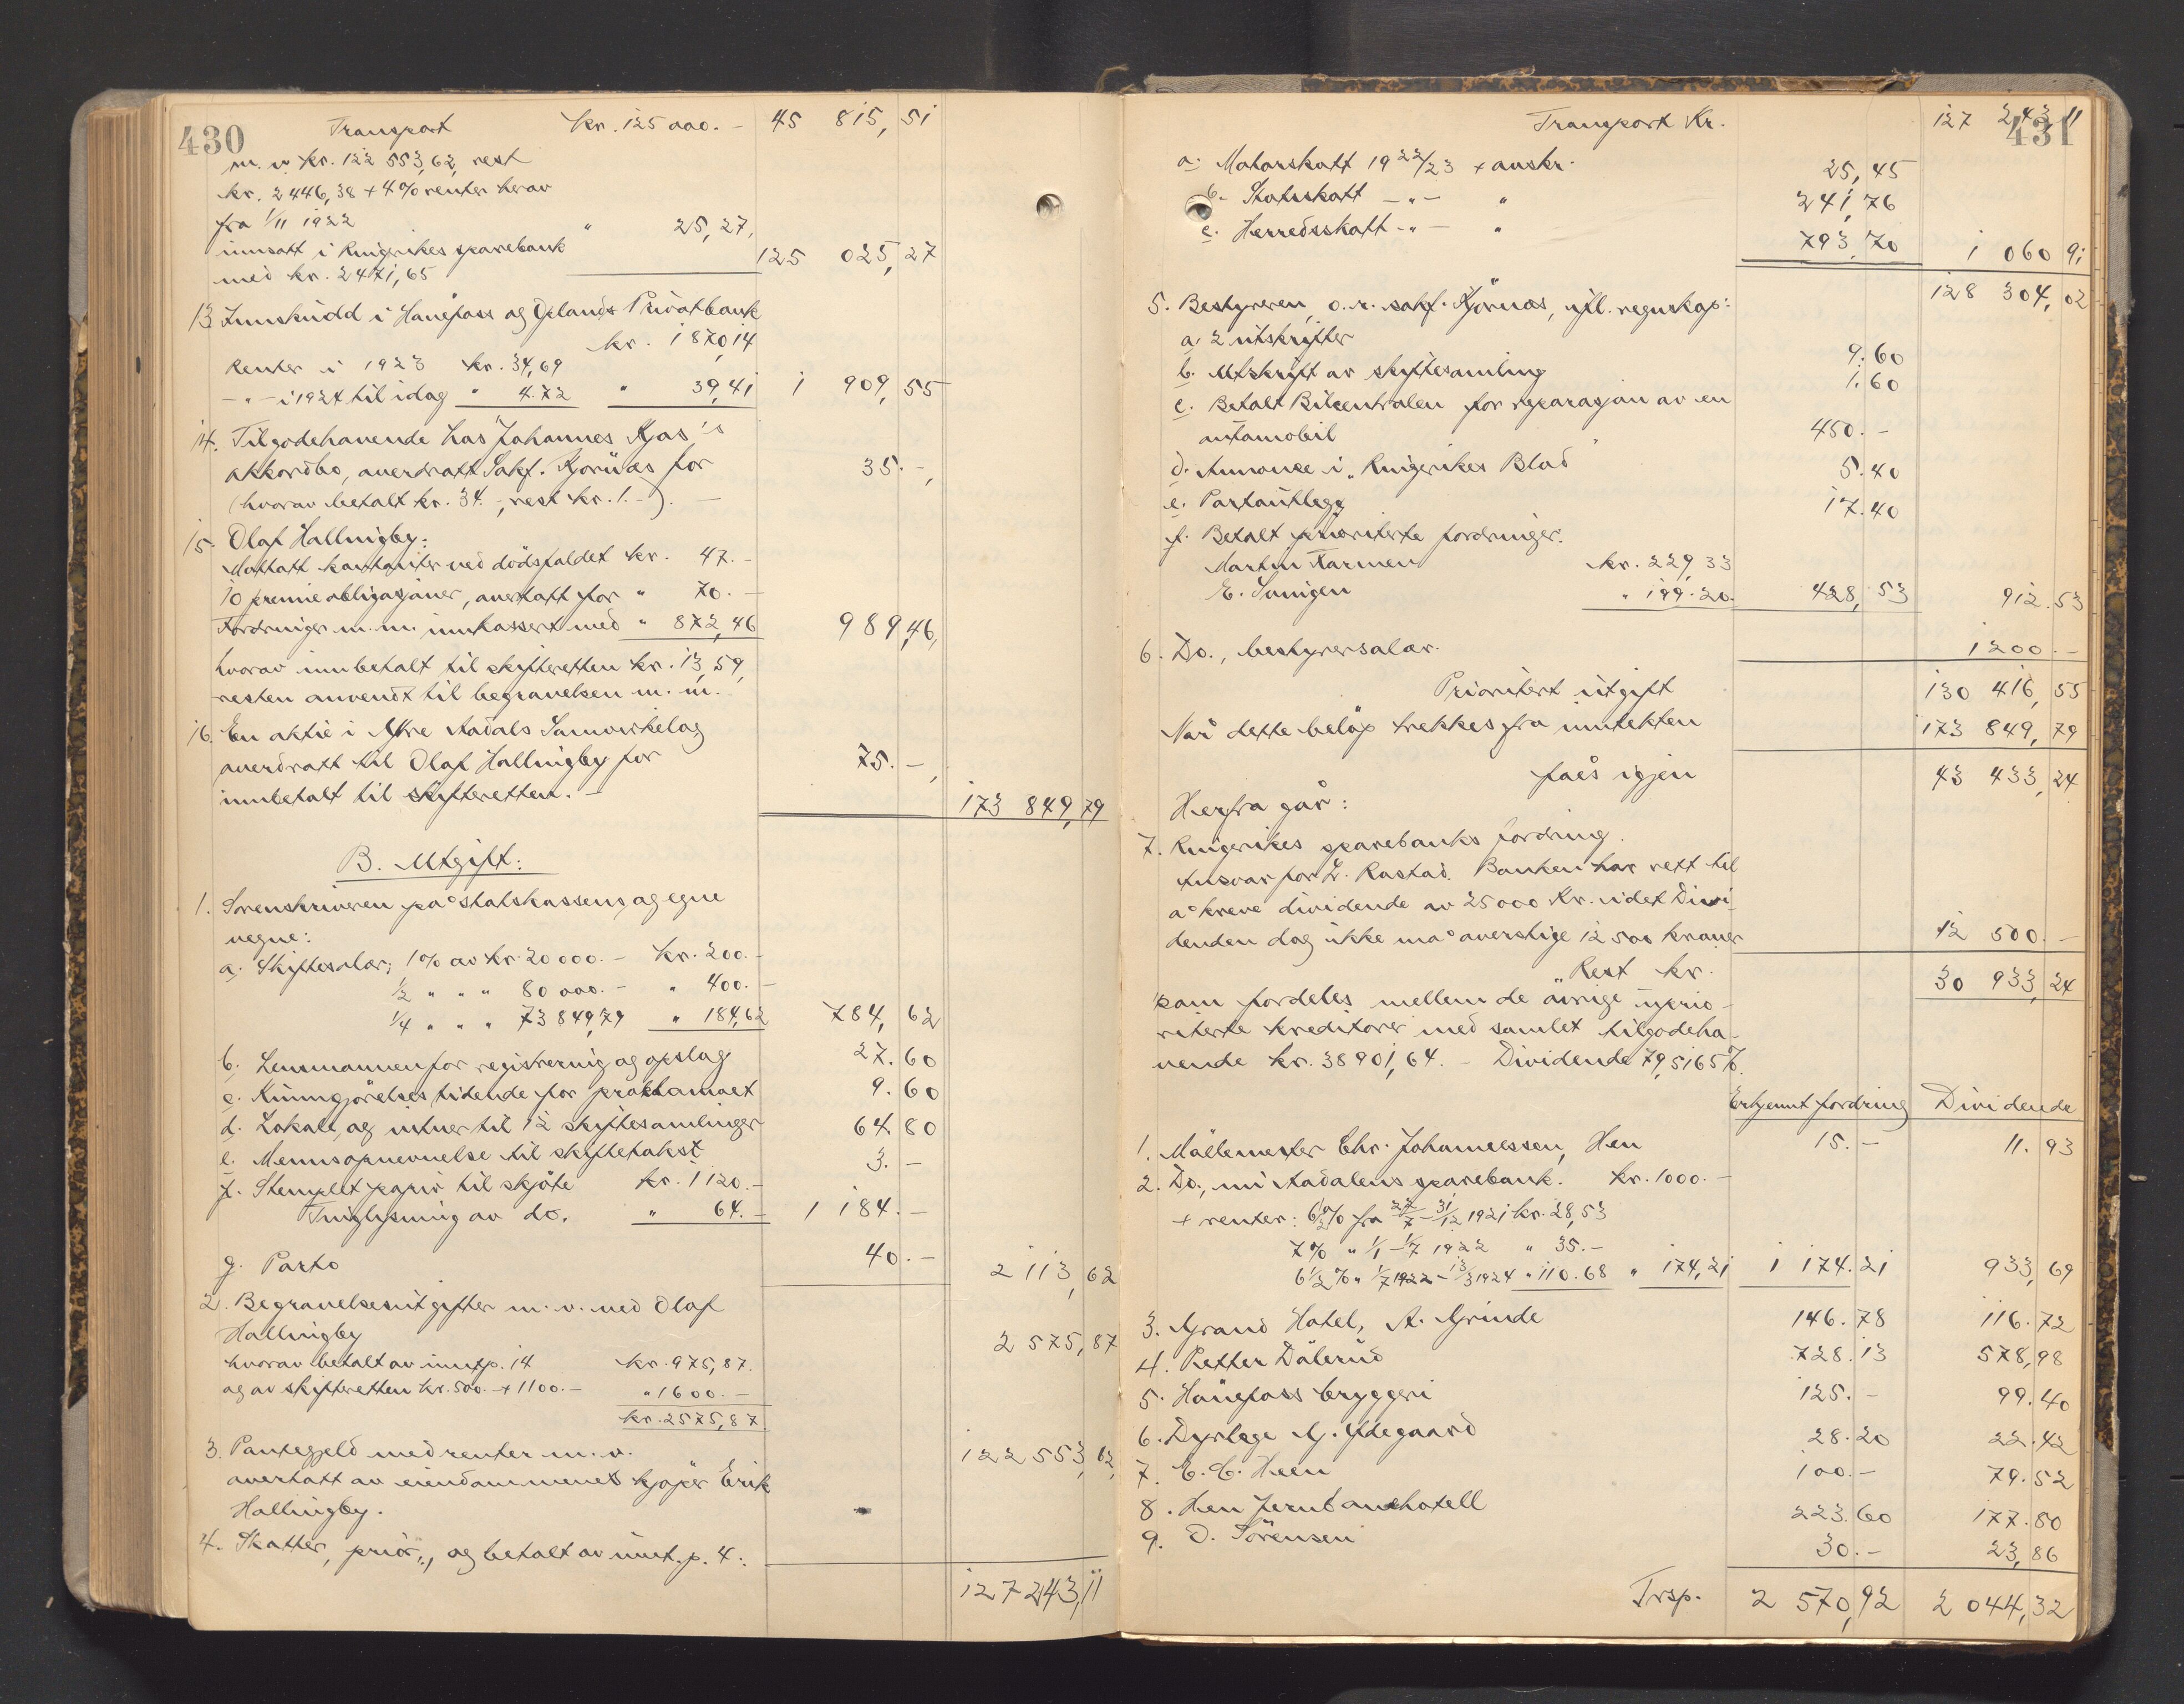 430
Transport kr. 125 000.- 45 815,51
m. v. kr. 122 553,62, rest
kr. 2446,38 + 4% renter herav
fra 1/11 1922 " 25,27,
innsatt i Ringerikes sparebank 125 025,27
med kr. 2471,65
13 Innskudd i Hønefoss og Oplands Privatbank
kr. 1870,14
Renter i 1923 kr. 34,69
-"- i 1924 til idag " 4.72 " 39,41 1 909,55
14. Tilgodehavende hos Johannes Aas's
akkordbo, overdratt Sakf. Kjørnæs for 35.-,
(hvorav betalt kr. 34.-, rest kr. 1.-). -
15. Olaf Hallingby:
Mottatt kontanter ved dödsfaldet kr. 47.-
10 premieobligasjoner, overtatt for " 70.-
Fordringer m.m. innkassert med " 872,46 989,46,
hvorav innbetalt til skifteretten kr. 13,59,
resten anvendt til begravelsen m. m.
16. En aktie i Ytre Aadals Samvirkelag
overdratt til Olaf Hallingby for 75.-,
innbetalt til skifteretten. - 173 849,79
B. Utgift:
1. Sorenskriveren på statskassens og egne
vegne:
a. Skiftesalær: 1% av kr. 20 000.- kr. 200.-
1/2 " " " 80 000.- " 400.-
1/4 " " " 73 849,79 " 184,62 784,62
b. Lensmannen for registrering og opslag 27.60
c. Kunngjörelsestidende for proklamaet 9.60
d. Lokale og vitner til 12 skiftesamlinger 64 80
e. Mennsopnevnelse til skiftetakst 3.-
f. Stemplet papir til skjöte kr. 1120.-
Tinglysning av do. " 64.- 1 184.-
g. Porto 40.- 2 113,62
2. Begravelsesutgifter m. v. ved Olaf
Hallingby 2 575,87
hvorav betalt av inntp. 14 kr. 975,87.
og av skifteretten kr. 500.- + 1100.- " 1600.-
kr. 2575,87.
3. Pantegjeld med renter m. v. 122 553,62,
overtatt av eiendommenes kjöper Erik
Hallingby.
4. Skatter, prior., og betalt av innt. p. 4:
127 243,11
431
Transport Kr. 127 243,11
a. Motorskatt 1922/23 + omkr. 25,45
b. Statsskatt -"- " 241,76
c. Herredsskatt -"- " 793,70 1 060 91
128 304,02
5. Bestyreren, o.r. sakf. Kjörnæs, ifl. regnskap:
a. 2 utskrifter 9.60
b. Utskrift av skiftesamling 1.60
c. Betalt Bilcentralen for reparasjon av en
automobil 450.-
d. Annonse i „Ringerikes Blad" 5.40
e. Portoutlegg 17.40
f. Betalt prioriterte fordringer.
Martin Farmen kr. 229,33
E. " 199.20. 428,53 912.53
6. Do., bestyrersalær. 1 200.-
Prioritert utgift 130 416,55
Når dette beløp trekkes fra inntekten 173 849,79
fåes igjen 43 433,24
Herfra går:
7. Ringerikes sparebanks fordring.
Ansvar for L. Rastad. Banken har rett til
å kreve dividende av 25 000 Kr. idet Divi-
denden dog ikke må overstige 12 500 kroner 12 500.-
"Rest kr. 30 933,24
som fordeles mellem de övrige uprio-
riterte kreditorer med samlet tilgodeha-
vende kr. 38 901,64. - Dividende 79,5165%.
Erkjennt fordring Dividende
1. Möllemester Chr. Johannessen, Hen 15.- 11.93
2. Do., nu Aadalens sparebank. Kr. 1000.-
+ renter: 6 1/2% fra 27/7 - 31/12 1921 kr. 28,53
7% " 1/1 - 1/7 1922 " 35.-
6 1/2% " 1/7 1922 - 13/3 1924 " 110.68 " 174,21 1 174.21 933,69
3. Grand Hotel, A. Grinde 146.78 116.72
4. Petter Dölerud 728.13 578,98
5. Hönefoss bryggeri 125.- 99.40
6. Dyrlege G. Ødegaard 28.20 22.42
7. E. C. Heen 100.- 79.52
8. Hen Jernbanehotell 223.60 177.80
9. O. Sörensen 30.- 23,86
Trsp. 2 570,92 2 044,32